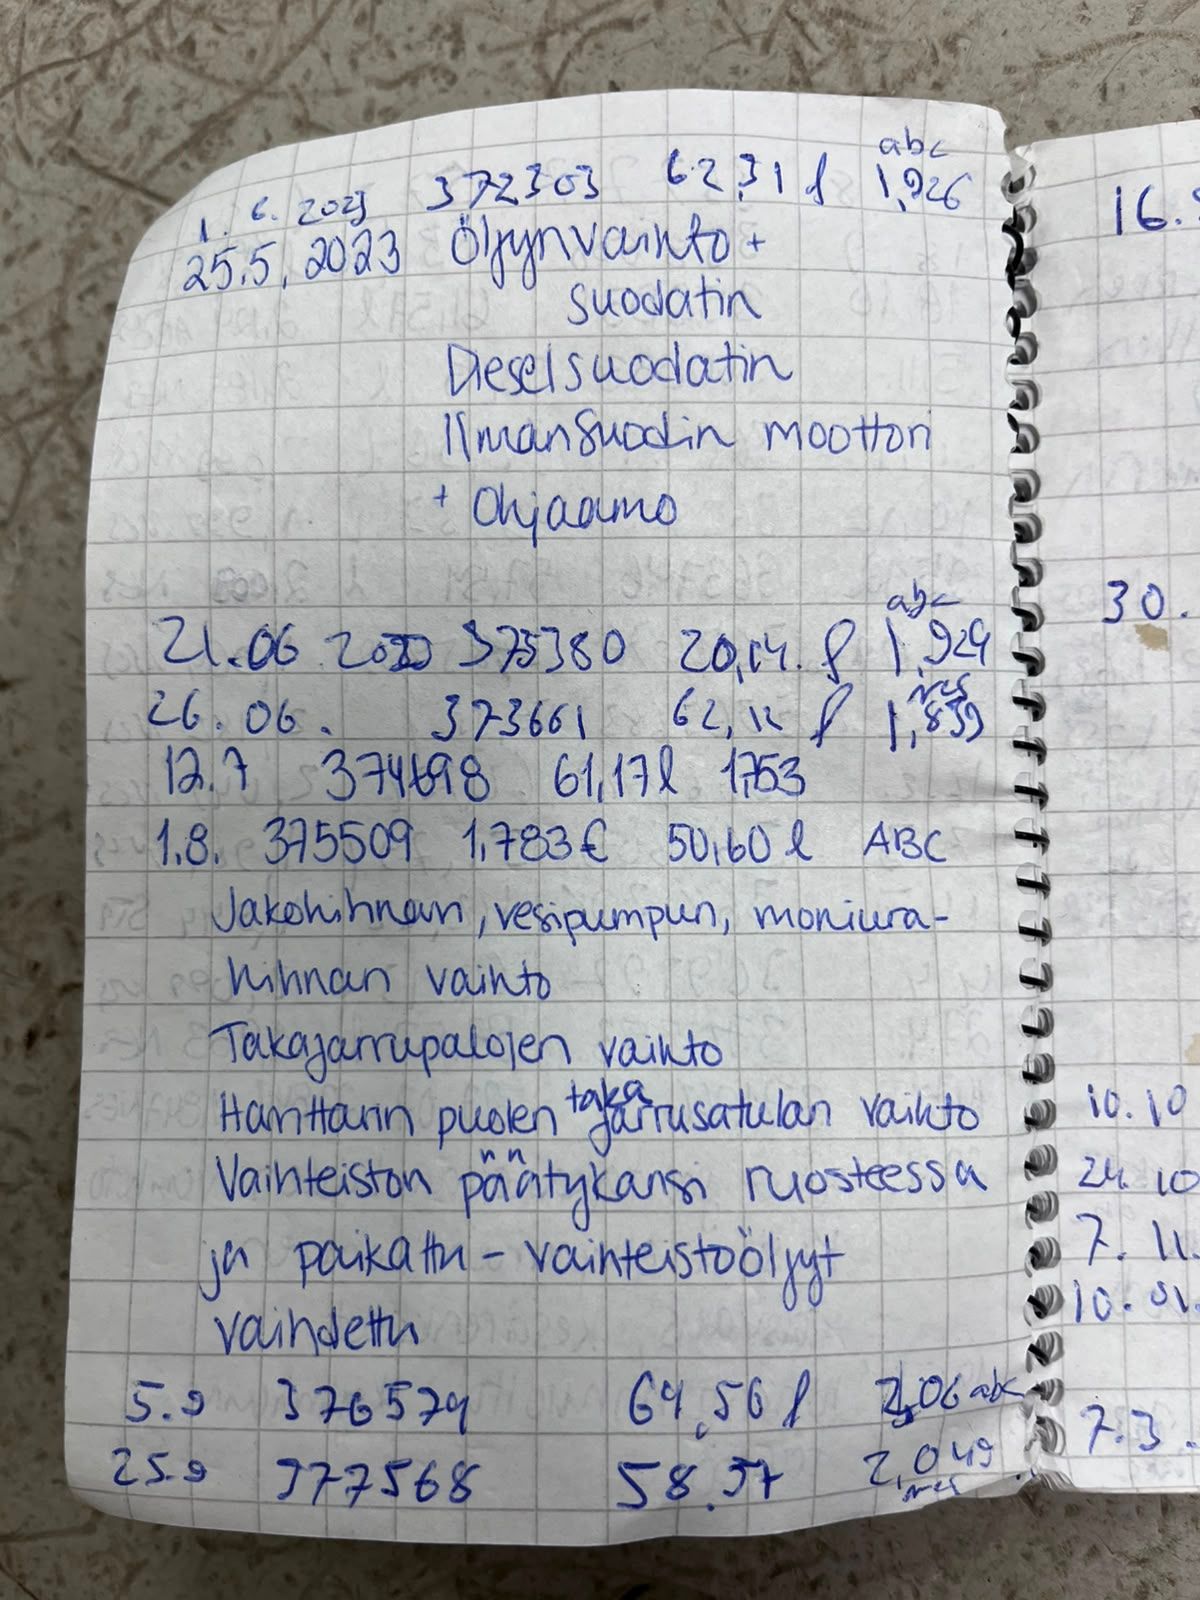 abc
1. 6. 2023 372303 62,31 l 1,926
25.5. 2023 Öljynvaihto +
suodatin
Dieselsuodatin
Ilmansuodin moottori
+ Ohjaamo
abc
21.06 375380 20,14. l 1,929
nes
26.06. 373661 62,12 l 1,839
12.7 374698 61,17 l 1,753
1.8. 375509 1,783€ 50,60 l ABC
Jakohihnan, vesipumpun, moniura-
hihnan vaihto
Takajarrupalojen vaihto
taka
Hanttarin puolen jarrusatulan vaihto
Vaihteiston päätykansi ruosteessa
ja paikattu - vaihteistoöljyt
vaihdettu
5.9 376579 64,56 l 2,06 abc
25.9 377568 58.57 2,049
nes
16.
30.
10.10
24.10
7.11.
10.01.
7.3.